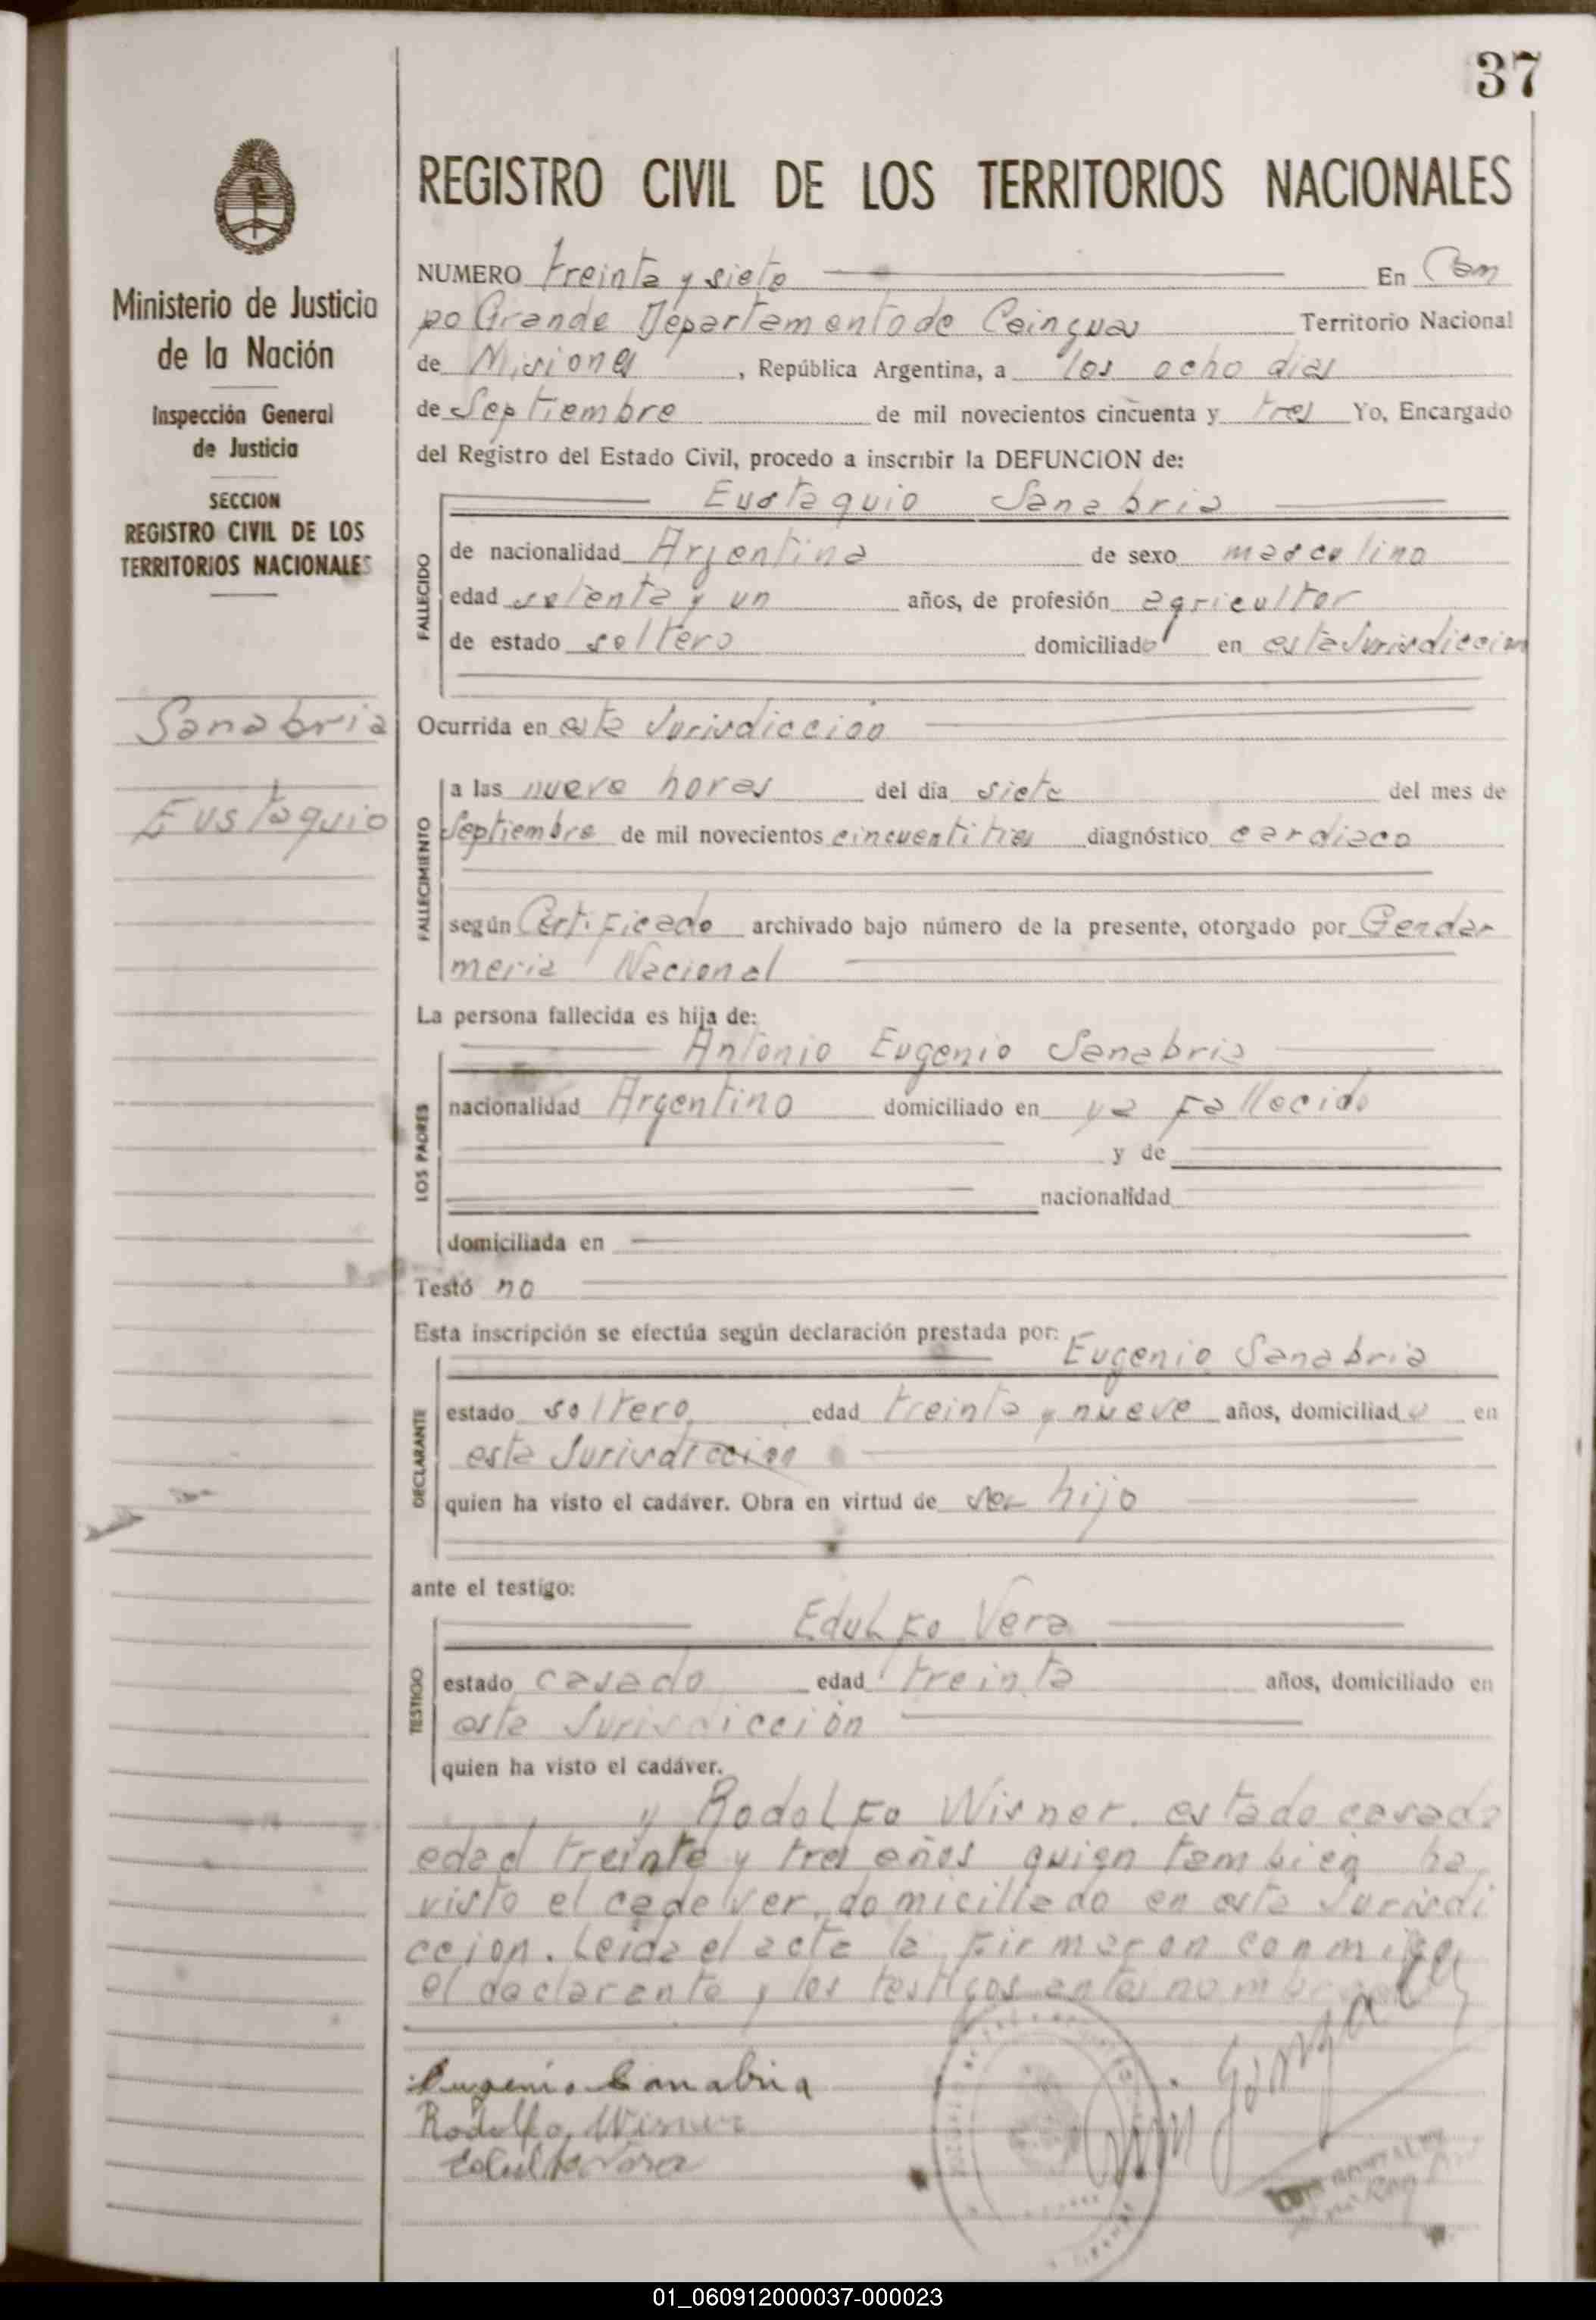 37
REGISTRO CIVIL DE LOS TERRITORIOS NACIONALES
Ministerio de Justicia
de la Nación
Inspección General
de Justicia
SECCION
REGISTRO CIVIL DE LOS
TERRITORIOS NACIONALES
Sanabria
Eustaquio
NUMERO treinta y siete En Cam
po Grande Departamento de Cainguas Territorio Nacional
de Misiones, República Argentina, a los ocho dias
de Septiembre de mil novecientos cincuenta y tres Yo, Encargado
del Registro del Estado Civil, procedo a inscribir la DEFUNCION de:
Eustaquio Sanabria
FALLECIDO
de nacionalidad Argentina de sexo masculino
edad setenta y un años, de profesión agricultor
de estado soltero domiciliado en esta Jurisdiccion
Ocurrida en esta Jurisdiccion
FALLECIMIENTO
a las nueve horas del día siete del mes de
Septiembre de mil novecientos cincuentitres diagnóstico cardiaco
según Certificado archivado bajo número de la presente, otorgado por Gendar
meria Nacional
La persona fallecida es hija de:
Antonio Eugenio Sanabria
LOS PADRES
nacionalidad Argentino domiciliado en ya fallecido
y de
nacionalidad
domiciliada en
Testó no
Esta inscripción se efectúa según declaración prestada por:
Eugenio Sanabria
DECLARANTE
estado soltero edad treinta y nueve años, domiciliado en
esta Jurisdiccion
quien ha visto el cadáver. Obra en virtud de ser hijo
ante el testigo:
Edulfo Vera
TESTIGO
estado casado edad treinta años, domiciliado en
esta Jurisdicción
quien ha visto el cadáver.
y Rodolfo Wisner. estado casado
edad treinta y tres años quien tambien ha
visto el cadaver, domicillado en esta Jurisdi
ccion. Leida el acta la firmaron conmigo
el declarante y los testigos antes nombrados
Eugenio Sanabria
Rodolfo Wisner
Edulfo Vera
01_060912000037-000023